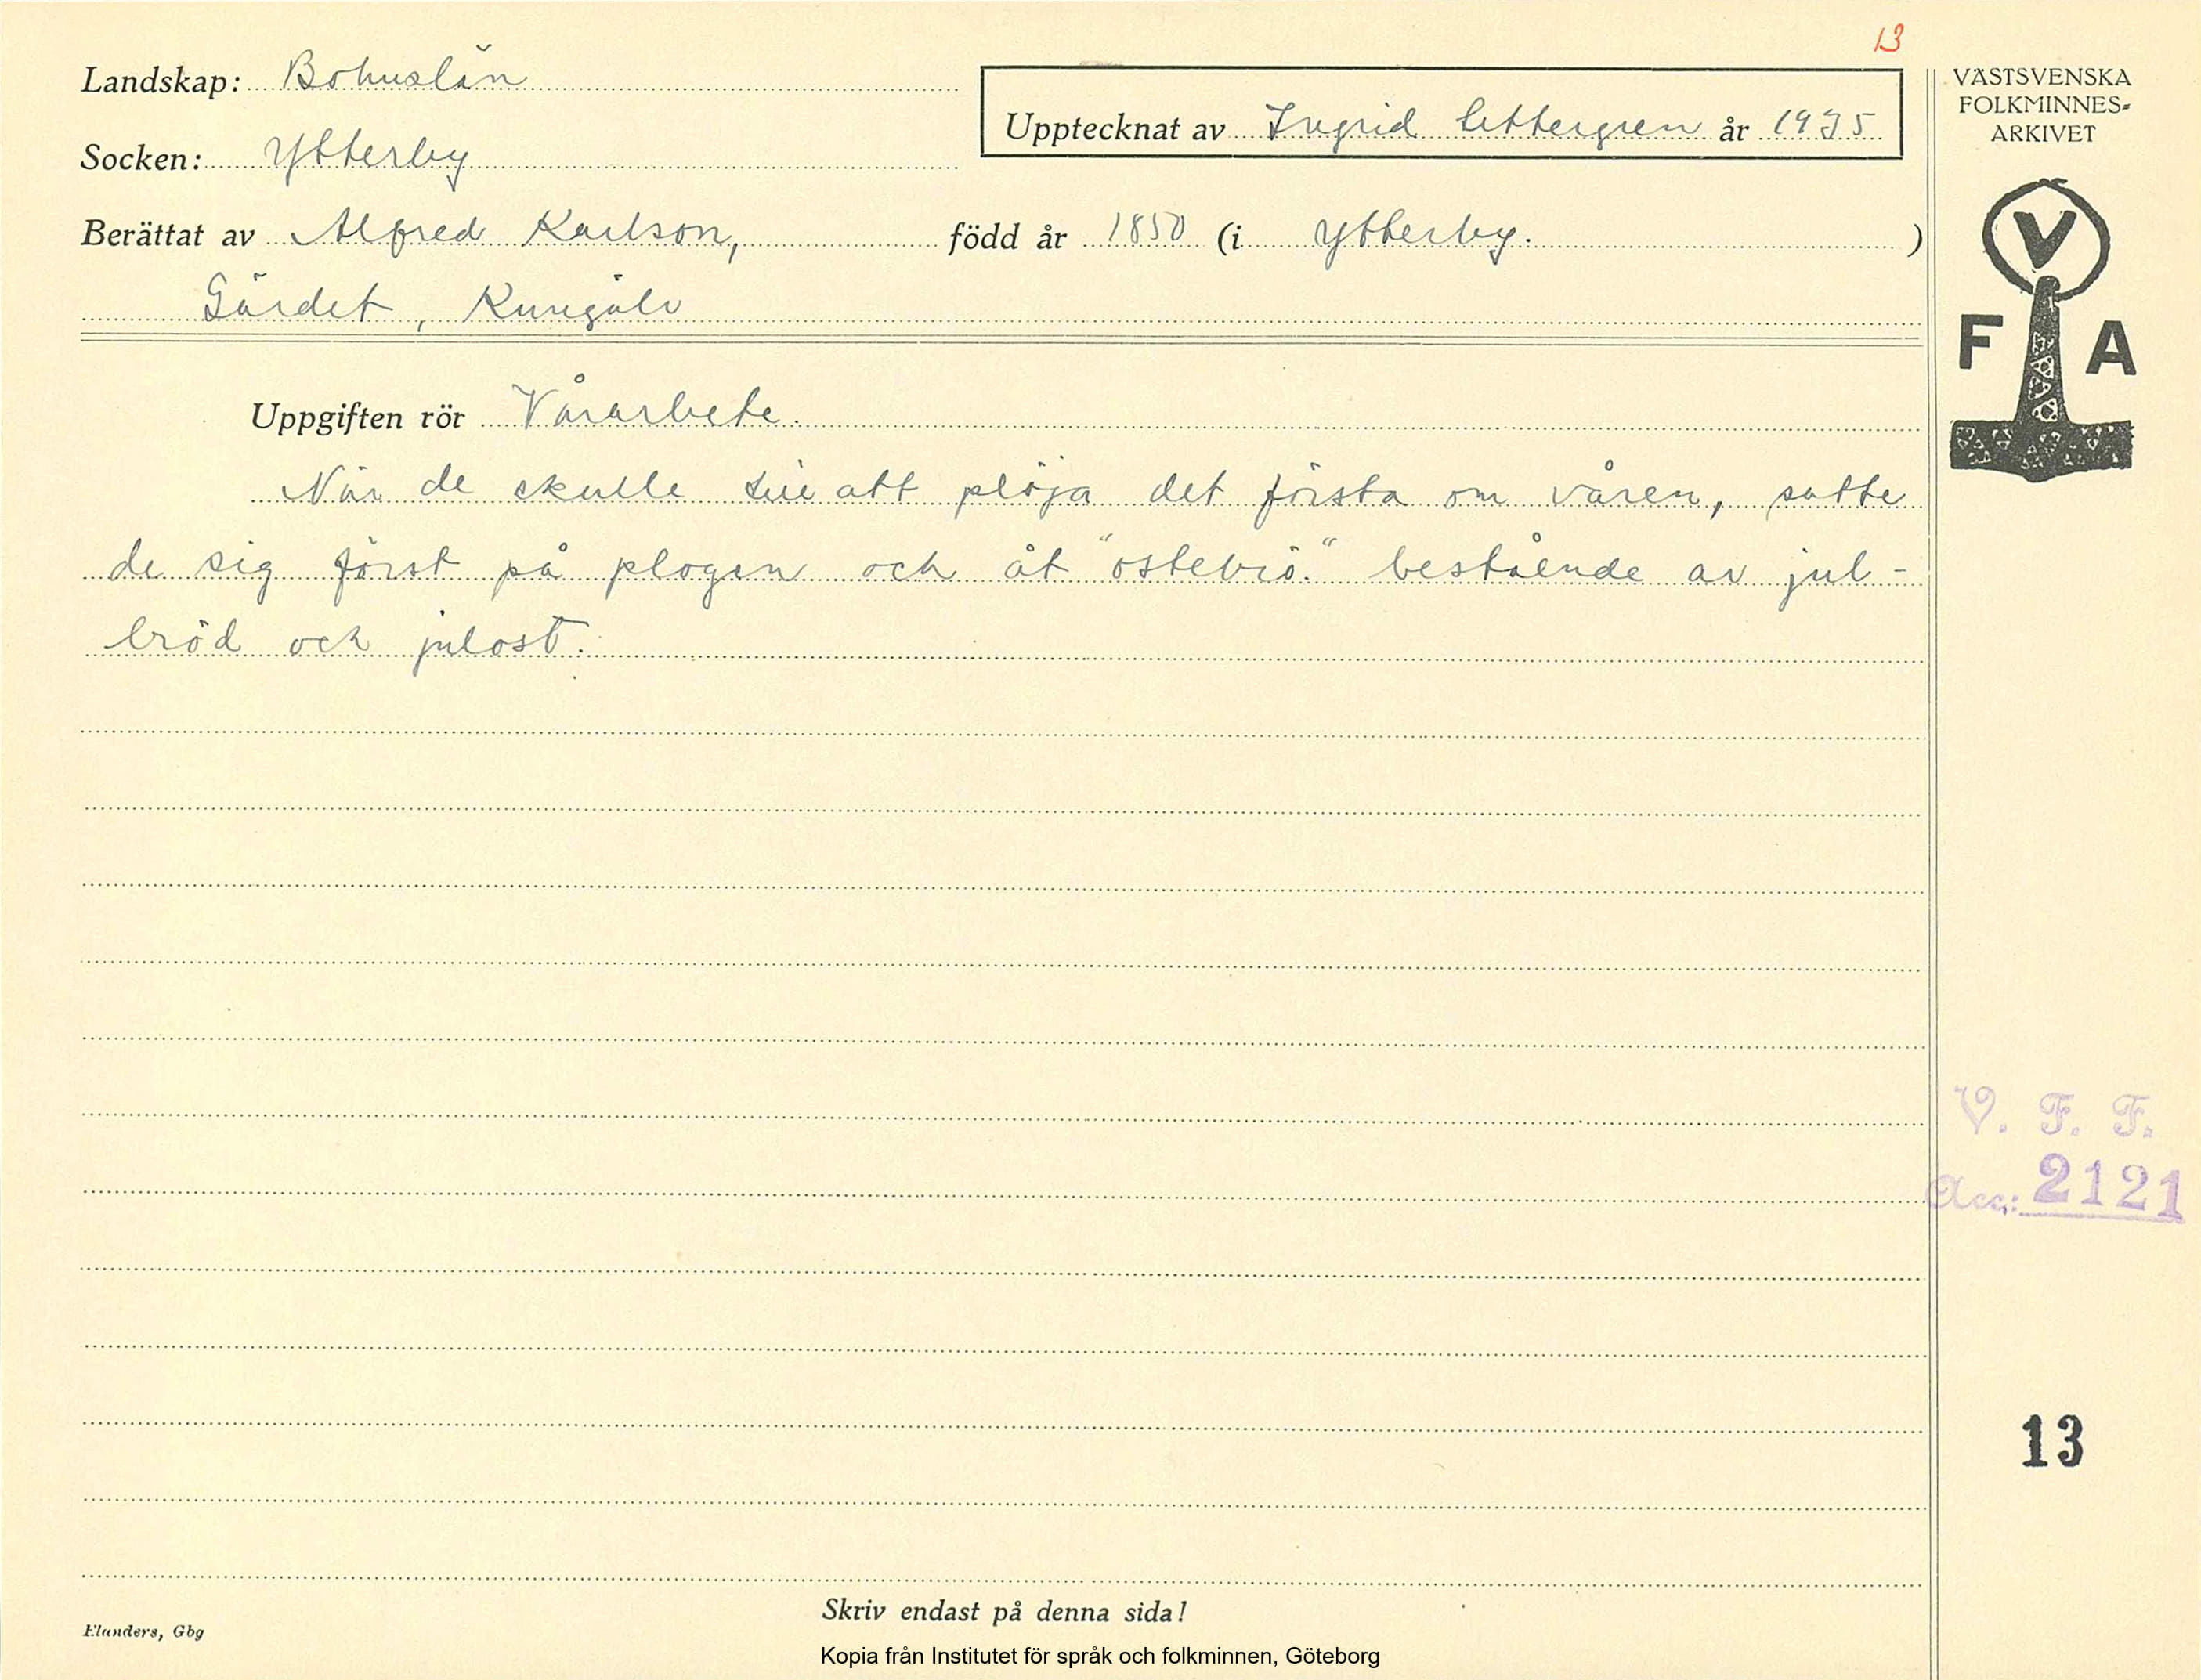 13
Landskap: Bohuslän
Upptecknat av Ingrid Cettergren år 1935
VÄSTSVENSKA
FOLKMINNES-
ARKIVET
Socken: Ytterby
Berättat av Alfred Karlson, född år 1850 (i Ytterby. )
Gärdet, Kungälv
V
F A
Uppgiften rör Vårarbete.
När de skulle till att plöja det första om våren, satte
de sig först på plogen och åt "ostebrö." bestående av jul-
bröd och julost.
V. F. F.
Acc: 2121
13
Skriv endast på denna sida!
Elanders, Gbg
Kopia från Institutet för språk och folkminnen, Göteborg